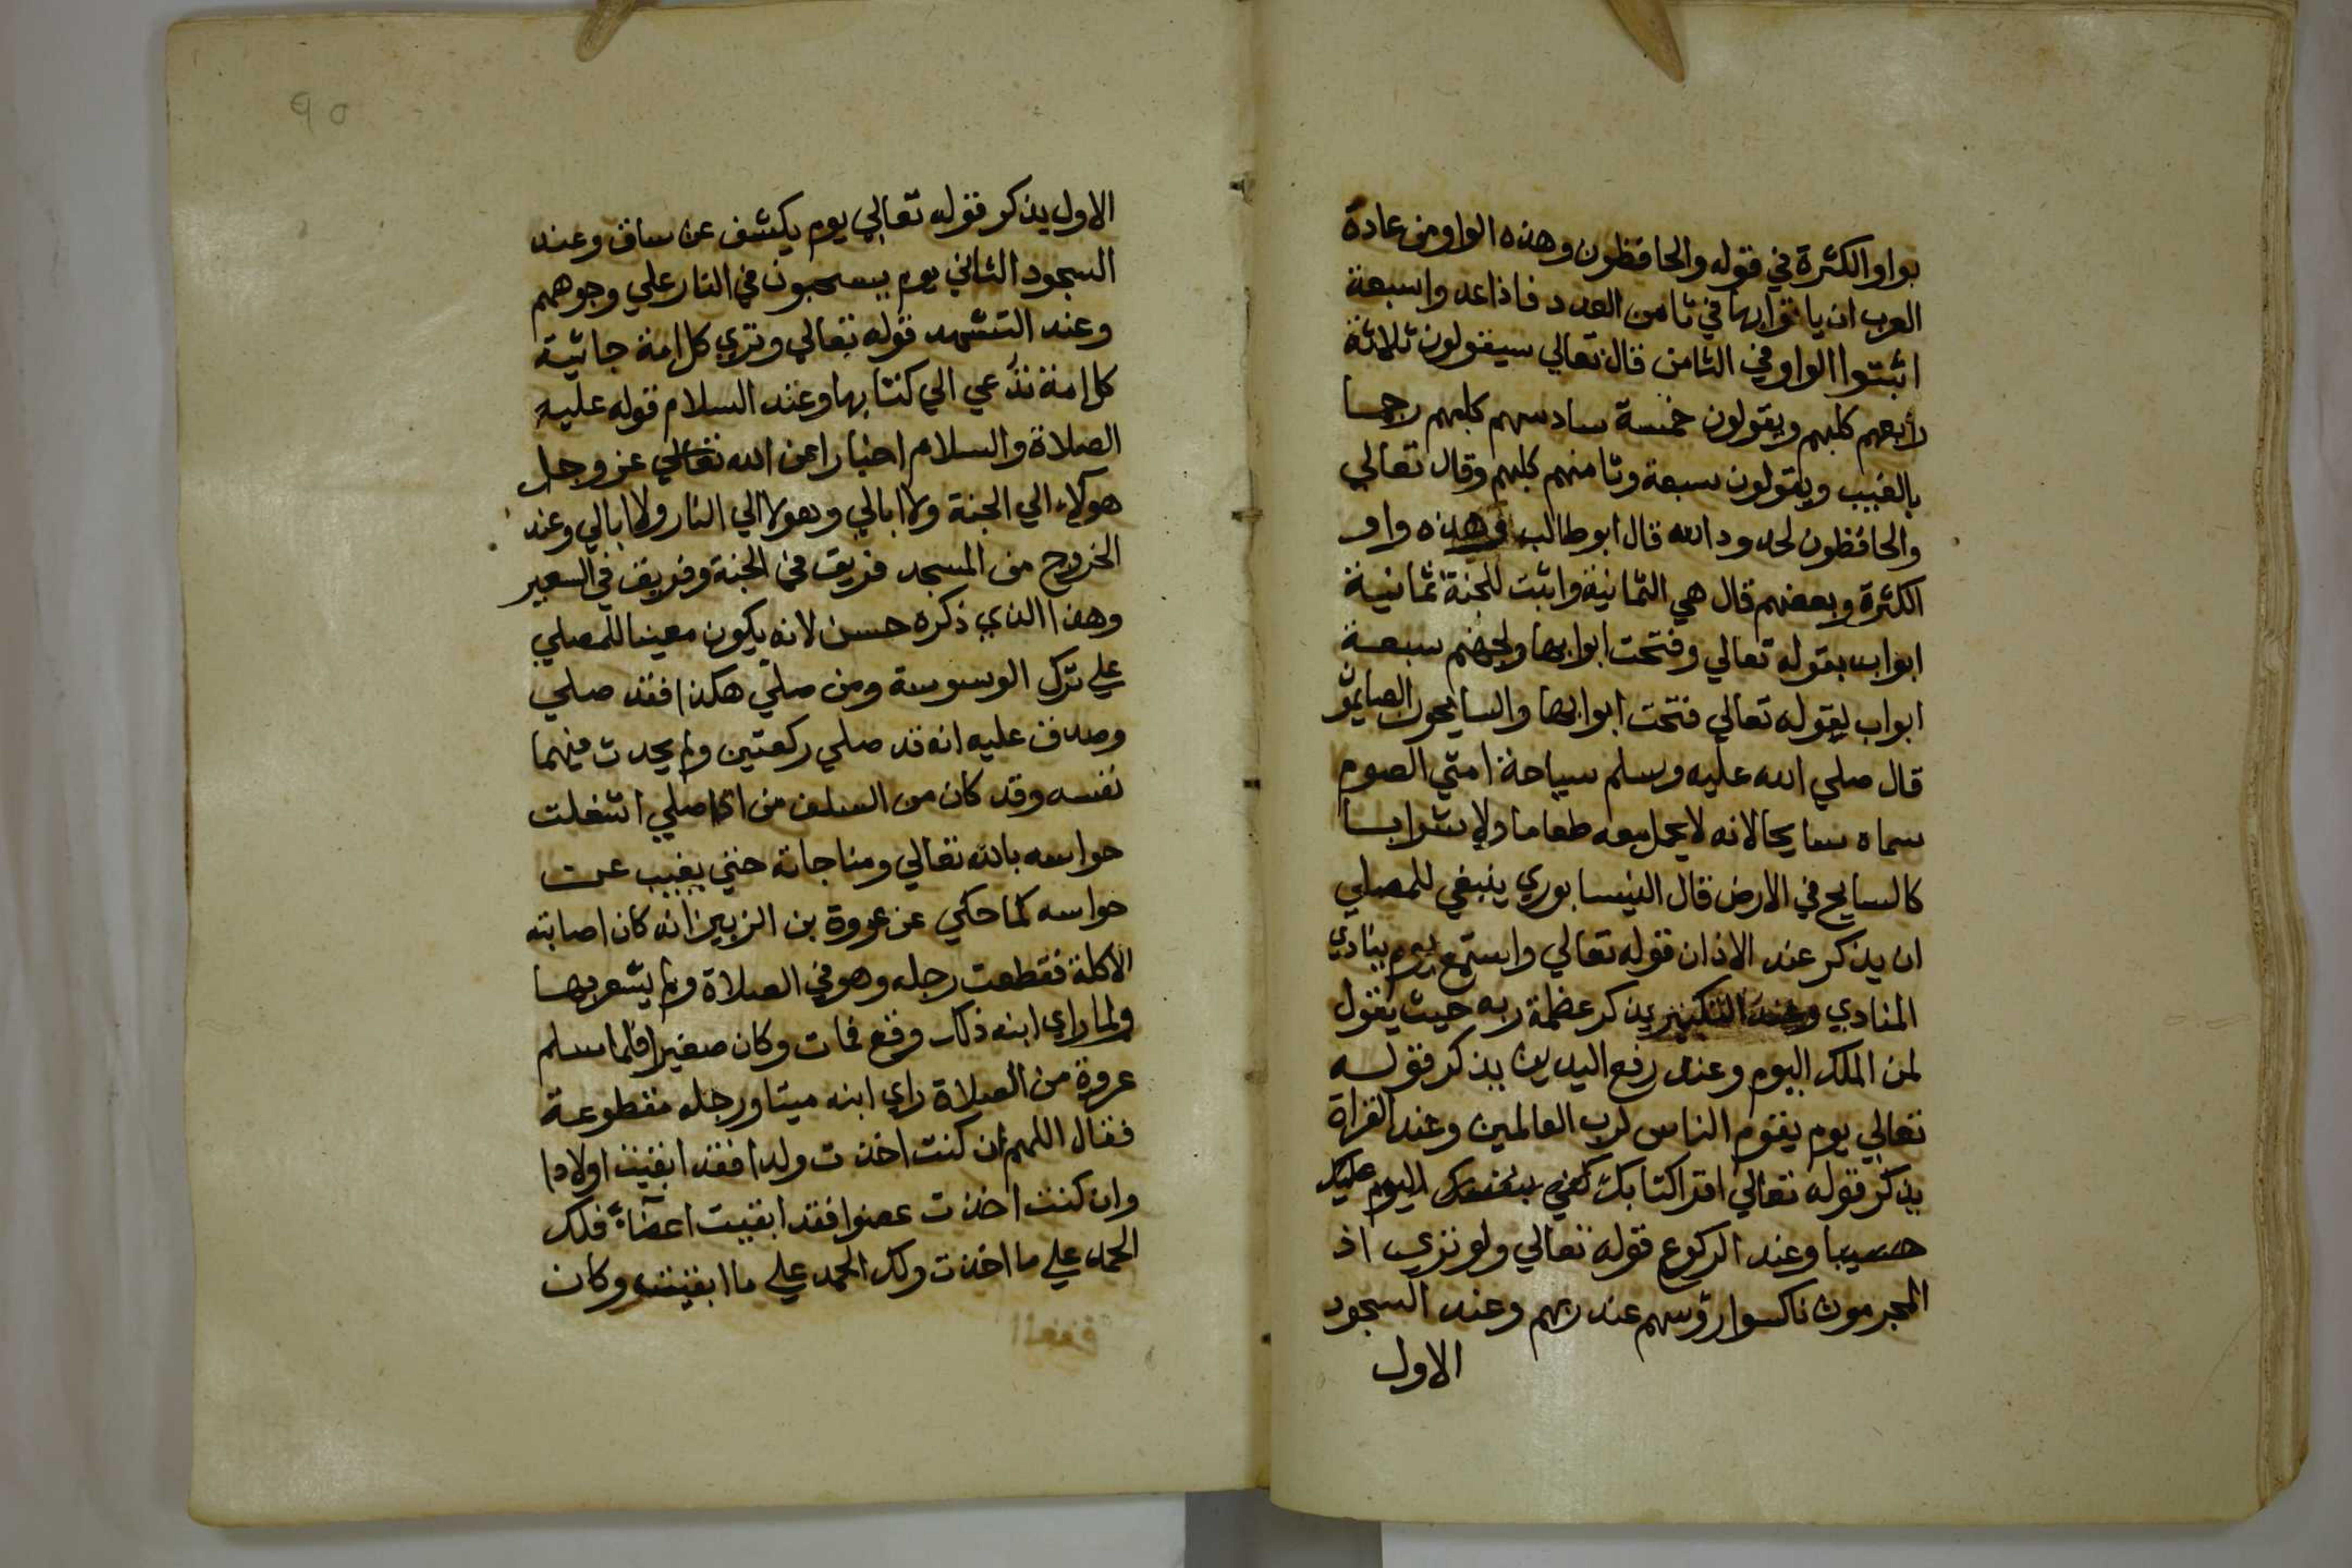 بواو الكثرة في قوله والحافظون وهذه الواو من عادة
العرب ان ياتوا بها في ثامن العدد فاذا عدوا سبعة
اثبتوا الواو في الثامن قال تعالي سيقولون ثلاثة
رابعهم كلبهم ويقولون خمسة سادسهم كلبهم رجما
بالغيب ويقولون سبعة وثامنهم كلبهم وقال تعالي
والحافظون لحدود الله قال ابو طالب وهذه واو
الكثرة وبعضهم قال هي الثمانية واثبت للجنة ثمانية
ابواب بقوله تعالي وفتحت ابوابها ولجهنم سبعة
ابواب بقوله تعالي فتحت ابوابها والسايحون الصايمون
قال صلي الله عليه وسلم سياحة امتي الصوم
سماه سايحا لانه لا يحمل معه طعاما ولا شرابا
كالسايح في الارض قال النيسابوري ينبغي للمصلي
ان يذكر عند الاذان قوله تعالي واستمع يوم ينادي
المنادي وعند التكبير يذكر عظمة ربه حيث يقول
لمن الملك اليوم وعند رفع اليدين يذكر قوله
تعالي يوم يقوم الناس لرب العالمين وعند القراة
يذكر قوله تعالي اقرا كتابك كفي بنفسك اليوم عليك
حسيبا وعند الركوع قوله تعالي ولو تري اذ
المجرمون ناكسوا رؤسهم عند ربهم وعند السجود
الاول
٩٥
الاول يذكر قوله تعالي يوم يكشف عن ساق وعند
السجود الثاني يوم يسحبون في النار علي وجوههم
وعند التشهد قوله تعالي وتري كل امة جاثية
كل امة تدعي الي كتابها وعند السلام قوله عليه
الصلاة والسلام اخبارا عن الله تعالي عز وجل
هولاء الي الجنة ولا ابالي وهولا الي النار ولا ابالي وعند
الخروج من المسجد فريق في الجنة وفريق في السعير
وهذا الذي ذكره حسن لانه يكون معينا للمصلي
علي ترك الوسوسة ومن صلي هكذا فقد صلي
وصدق عليه انه قد صلي ركعتين ولم يحدث فيهما
نفسه وقد كان من السلف من اذا صلي اشتغلت
حواسه بالله تعالي ومناجاته حتي يغيب عن
حواسه كما حكي عن عروة بن الزبير انه كان اصابته
الاكلة فقطعت رجله وهو في الصلاة ولم يشعر بها
ولما راي ابنه ذلك وقع فمات وكان صغيرا فلما سلم
عروة من الصلاة راي ابنه ميتا ورجله مقطوعة
فقال اللهم ان كنت اخذت ولدا فقد ابقيت اولادا
وان كنت اخذت عضوا فقد ابقيت اعضاءً فلك
الحمد علي ما اخذت ولك الحمد علي ما ابقيت وكان